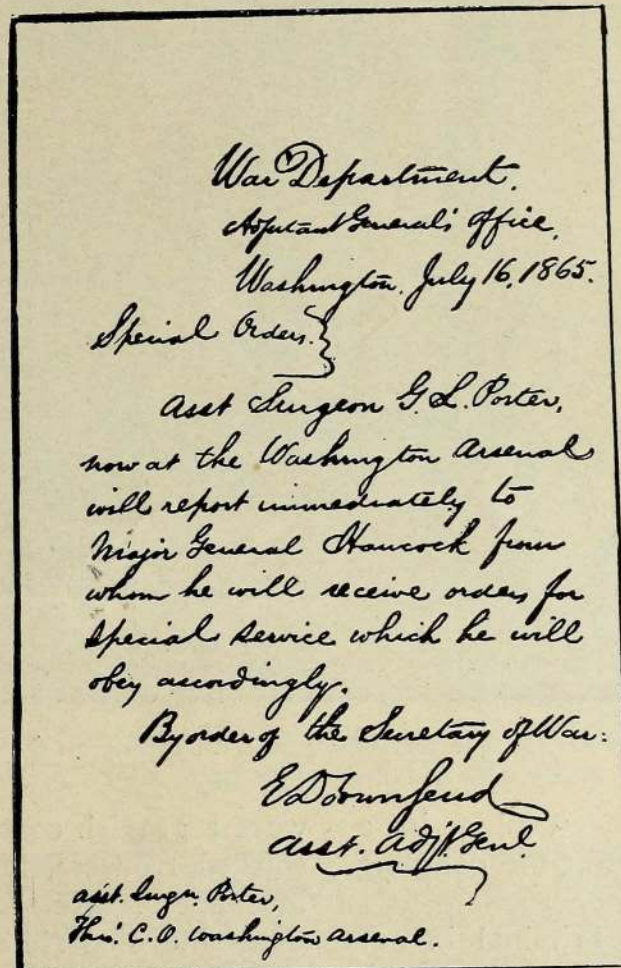 War Department,
Adjutant General's Office,
Washington, July 16, 1865.
Special Orders.
Asst Surgeon G. L. Porter,
now at the Washington Arsenal
will report immediately to
Major General Hancock from
whom he will receive orders for
special service which he will
obey accordingly.
By order of the Secretary of War:
E D Townsend
Asst. Adjt. Genl.
Asst. Surgn. Porter,
Thro'. C. O. Washington Arsenal.